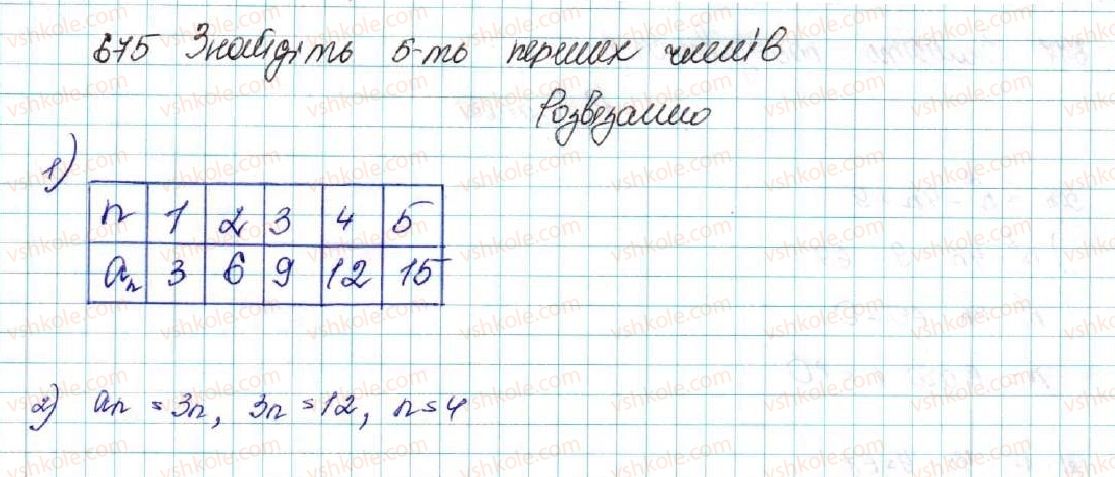 675 Знайдіть 5-ть перших членів
Розвязанно
1)
n 1 2 3 4 5
an 3 6 9 12 15
2) an = 3n, 3n = 12, n = 4